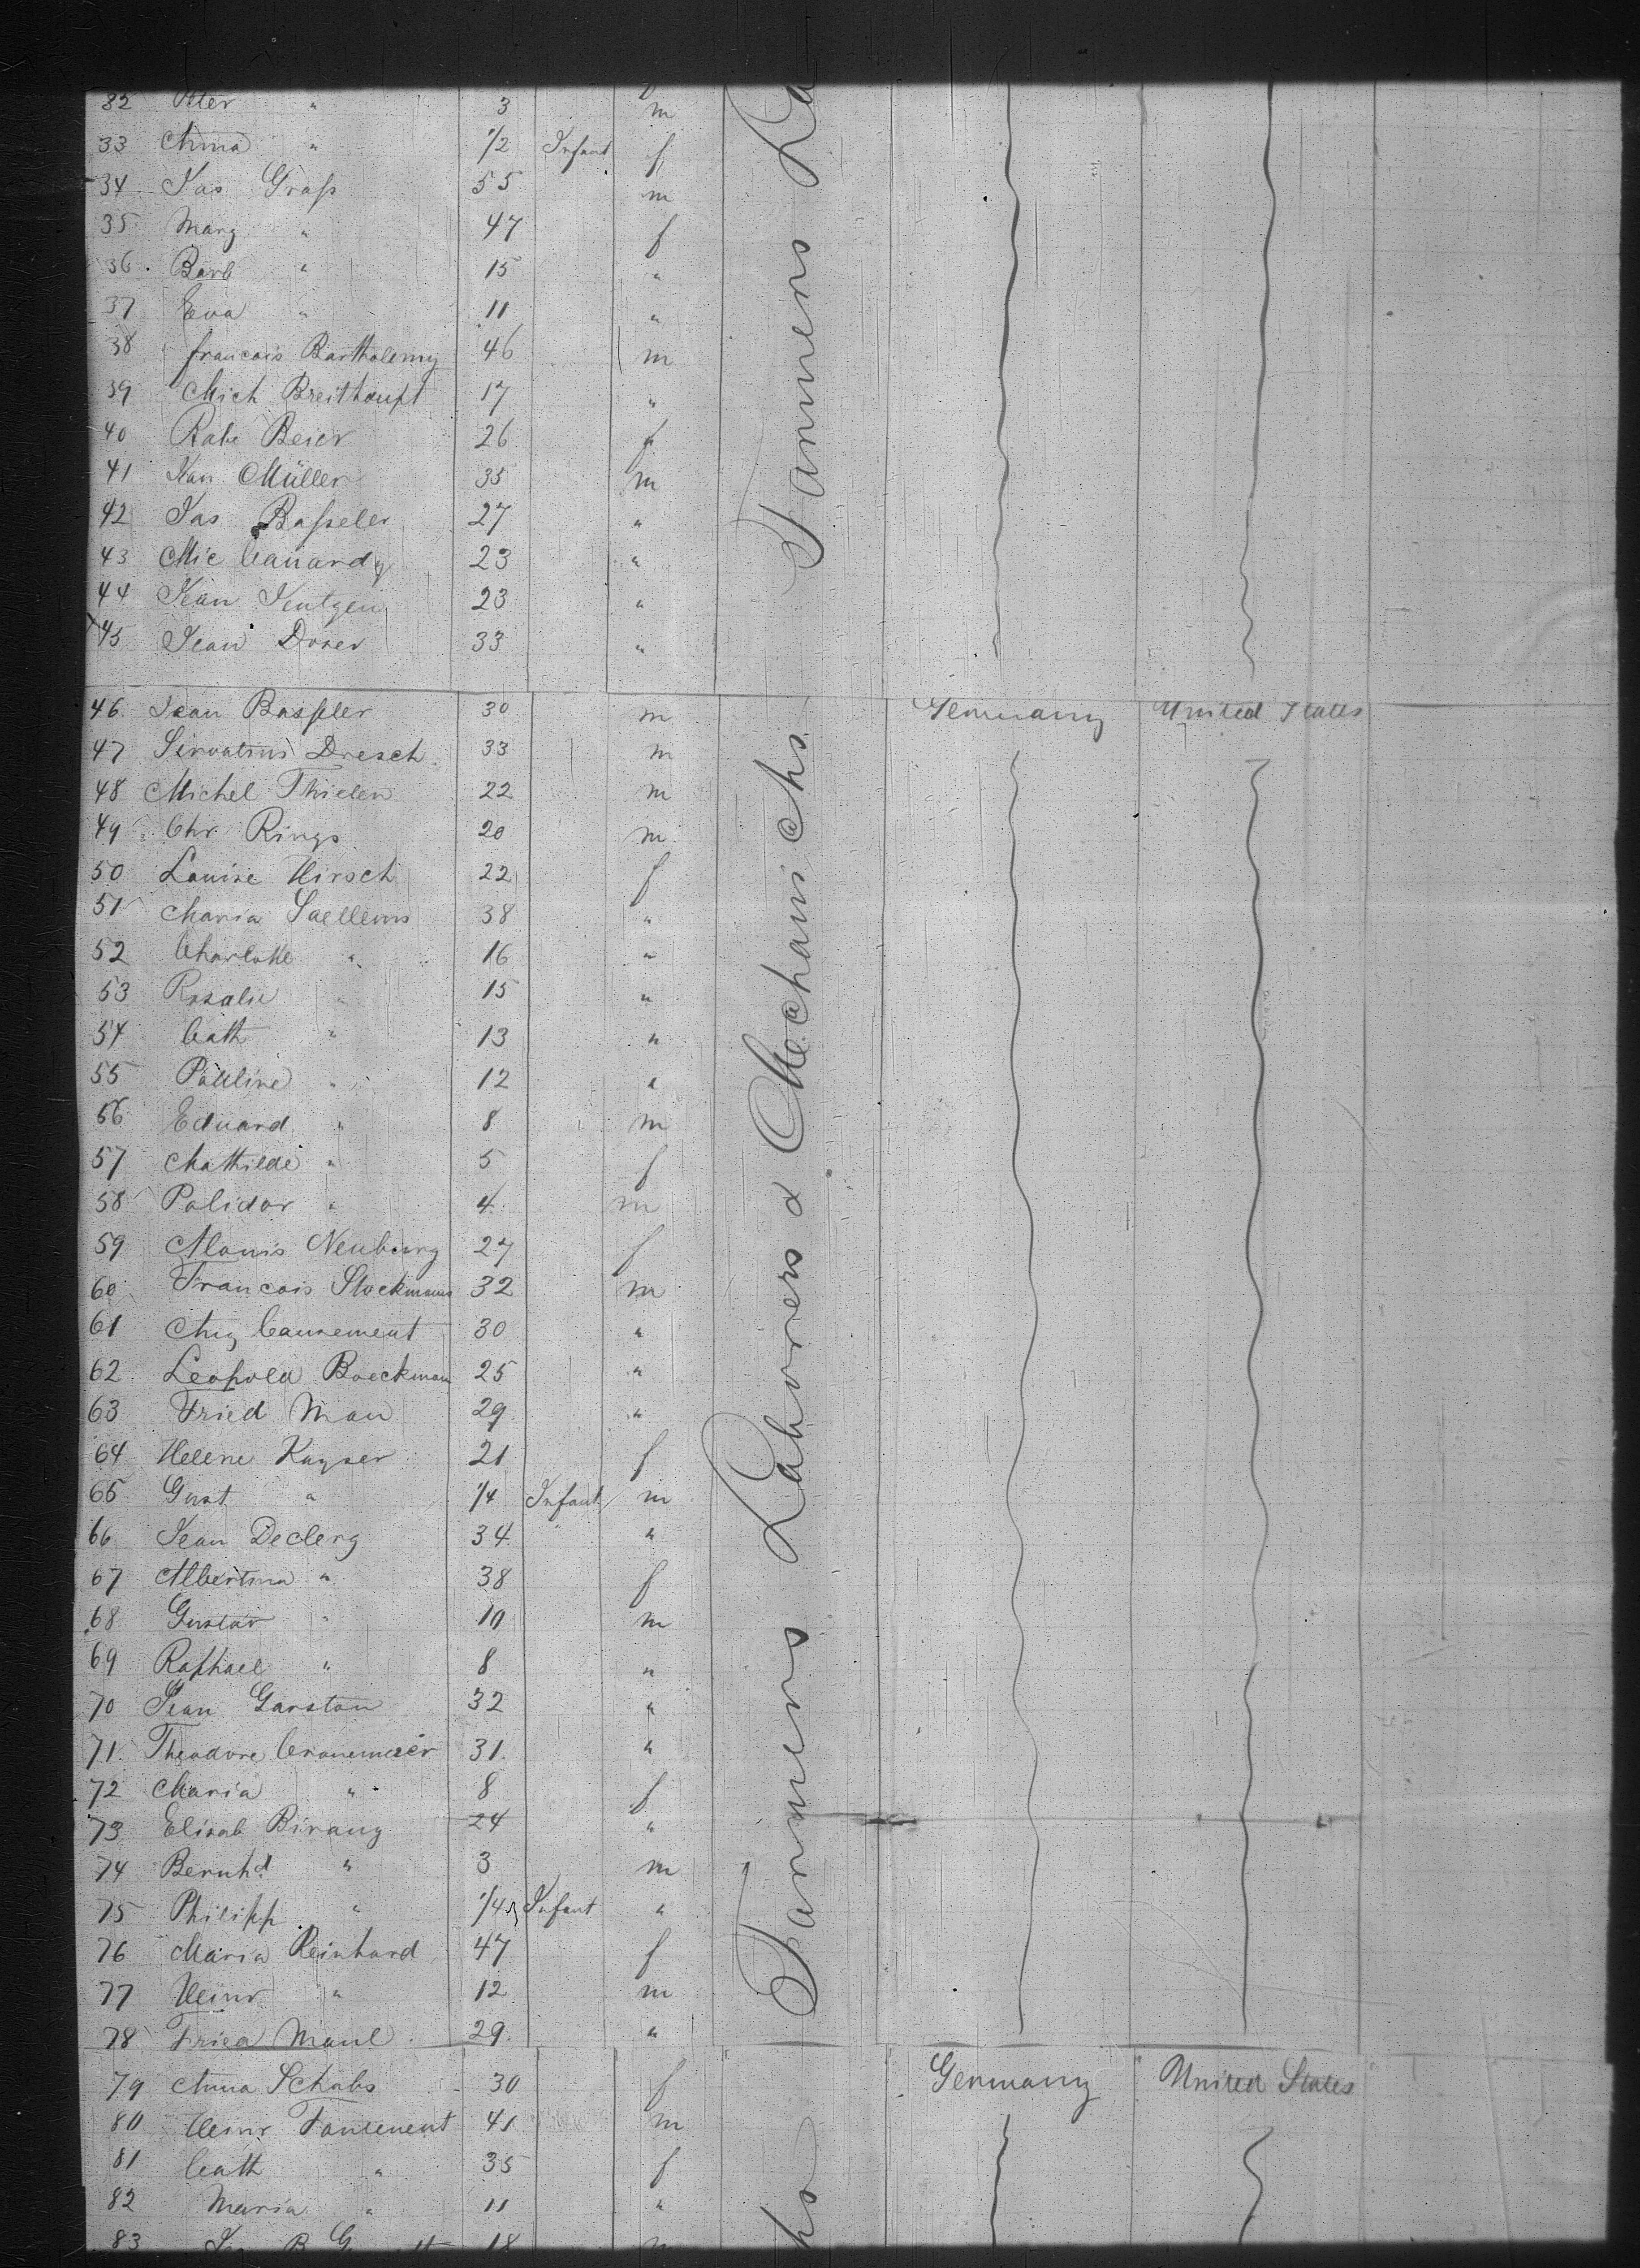 32 Peter " 3 m
33 Anna " 1/2 Infant f
34 Jas Graß 55 m
35 Marg " 47 f
36 Barb " 15 "
37 Eva " 11 "
38 francois Barthelemy 46 m
39 Mich Breithaupt 17 "
40 Beier 26 f
41 Müller 35 m
42 Jas Baßeler 27 "
43 Mic 23 "
44 Jean 23 "
45 Jean 33 "
Farmers
46 Jean Bassler 30 m Germany United States
47 Servatius Dresch 33 m
48 Michel Thielen 22 m
49 Chr. Rings 20 m
50 Louise Hirsch 22 f
51 Maria Saellens 38 "
52 Charlotte " 16 "
53 Rosalie " 15 "
54 Cath " 13 "
55 Pauline " 12 "
56 Eduard " 8 m
57 Mathilde " 5 f
58 Polidor " 4 m
59 Neuburg 27 f
60 Francois Stockmans 32 m
61 Aug Causement 30 "
62 Leopold Boeckman 25 "
63 Fried Man 29 "
64 Helene Kayser 21 f
65 Gust " 1/4 Infant m
66 Jean Declerg 34 "
67 Albertina " 38 f
68 Gustav " 10 m
69 Raphael " 8 "
70 Jean Garston 32 "
71 Theodore Cronemeier 31 "
72 Maria " 8 f
73 Elisab Birang 24 "
74 Bernhd " 3 m
75 Philipp " 1/4 Infant "
76 Maria Reinhard 47 f
77 Heinr " 12 m
78 Fried Maul 29 "
Farmers Labourers & Mechanichs
79 Anna Schabs 30 f Germany United States
80 Heinr 41 m
81 Cath " 35 f
82 Maria " 11 "
83 18 m